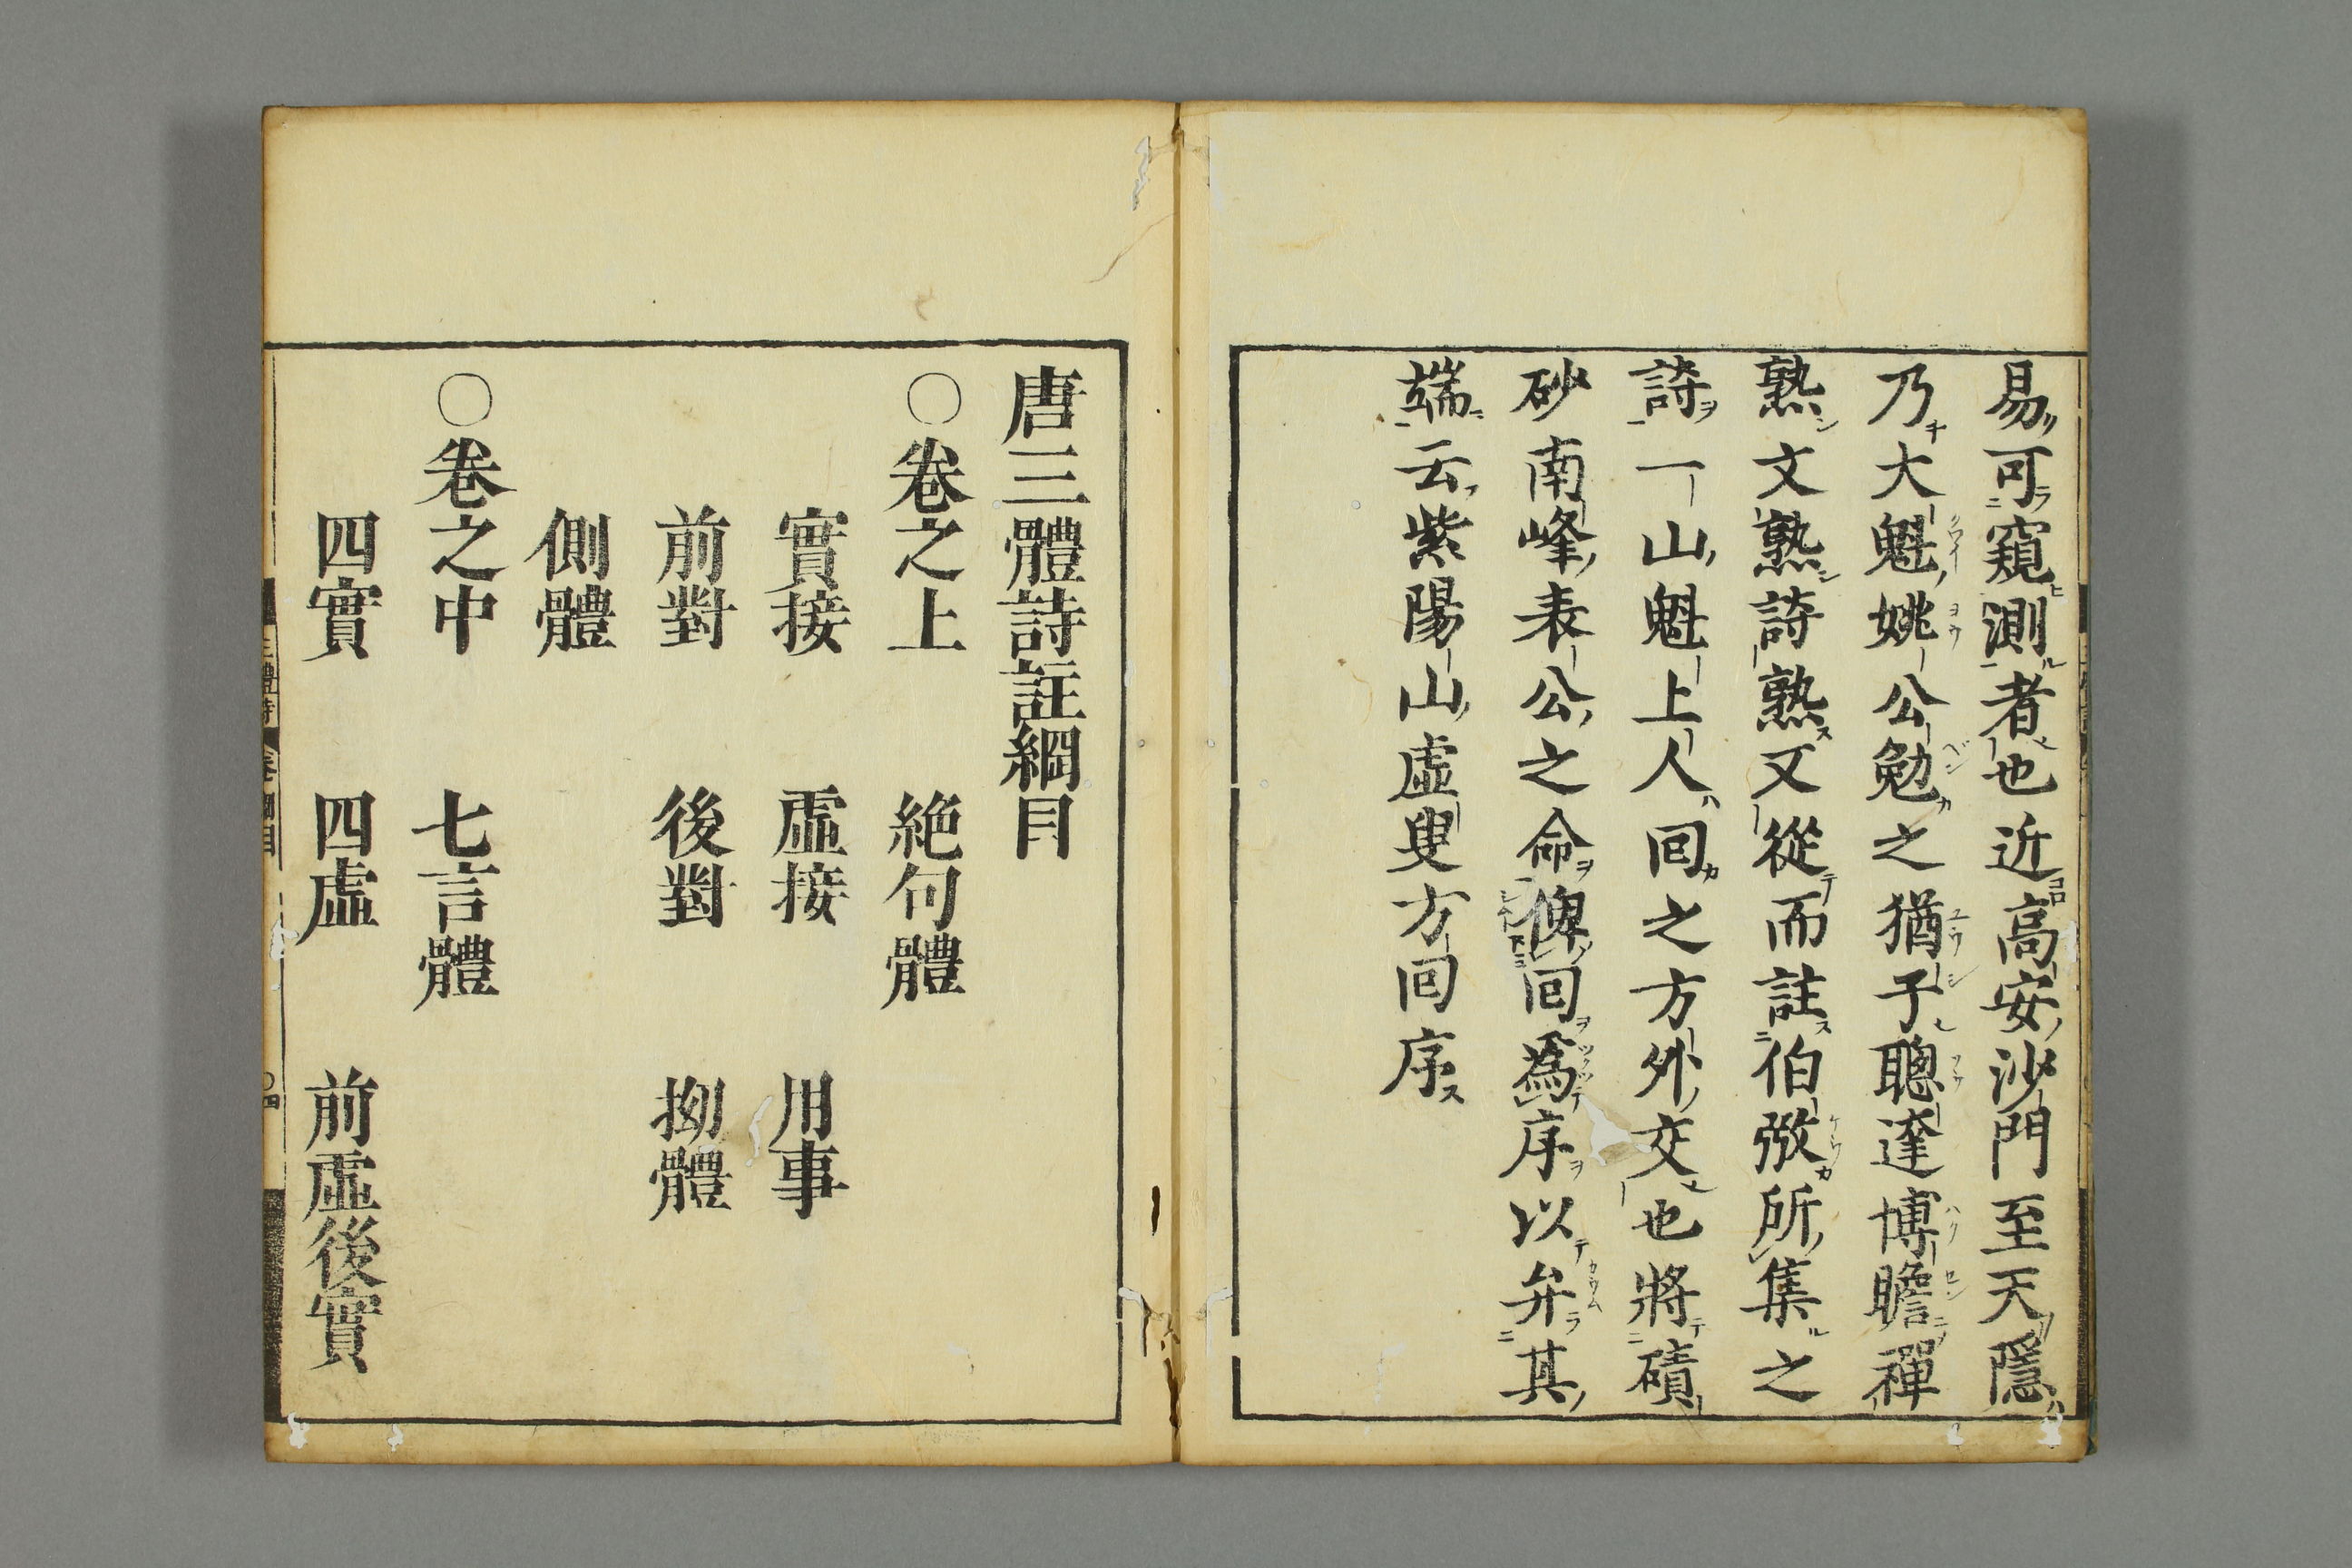 易可窺測者也近高安沙門至天隱
乃大魁姚公勉之猶子聰達博瞻禪
熟文熟詩熟又從而註伯弜所集之
詩一山魁上人囘之方外交也將磧
砂南峰表公之命俾囘爲序以弁其
端云紫陽山虛叟方囘序
唐三體詩註綱目
○卷之上 絶句體
實接 虛接 用事
前對 後對 拗體
側體
○卷之中 七言體
四實 四虛 前虛後實